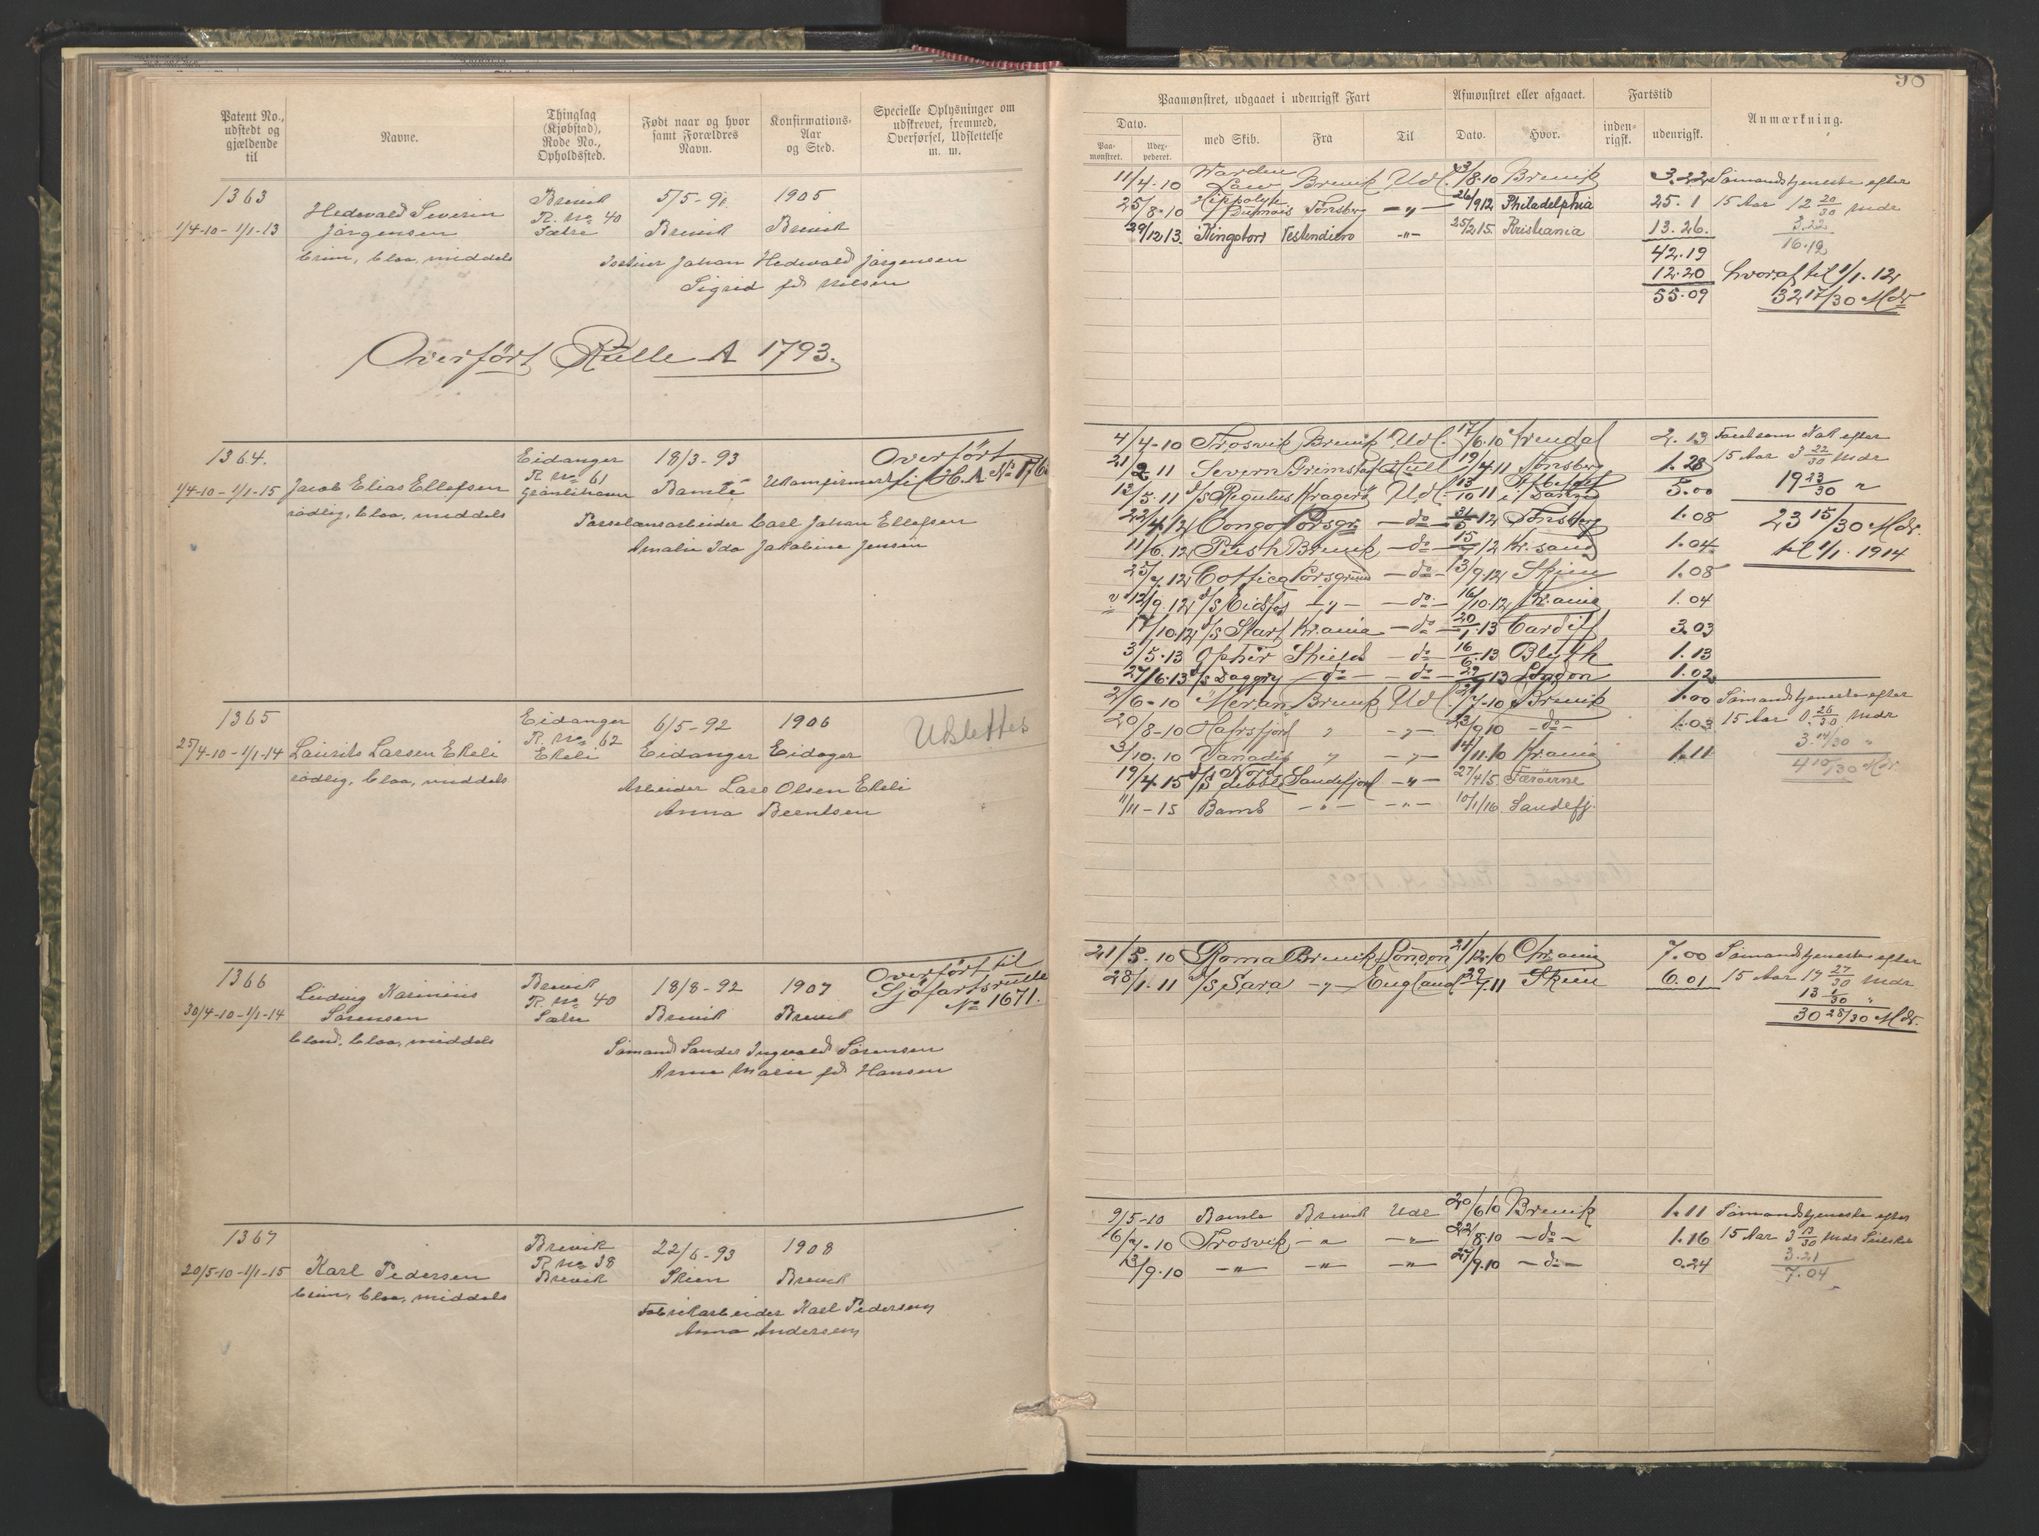 Patent No., udstedt og gjældende til
Navne.
Thinglag (Kjøbstad), Rode No., Opholdssted.
Født naar og hvor samt Forældres Navn.
Konfirmations-Aar og Sted.
Specielle Oplysninger om udskrevet, fremmed, Overførsel, Udslettelse m. m.
1363
1/4-10 - 1/1-13
Hedevald Severin
Jørgensen
brun, blaa, middels
Brevik
R. No 40
5/5-91
Brevik
1905
Brevik
Johan Hedevald Jørgensen
Sigrid fd Nilsen
Overført Rulle A 1793.
1364.
1/4-10 - 1/1-15
Jacob Elias Ellefsen
rødlig, blaa, middels
Eidanger
R No 61
18/3-93
Bamle
Ukonfirmert
Overført
til H.A. No
Porselænsarbeider Carl Johan Ellefsen
Amalie Ida Jakobine Jensen
1365
25/4-10 - 1/1-14
Laurits Larsen Ekeli
rødlig, blaa, middels
Eidanger
R. No 62
Ekeli
6/5-92
Eidanger
1906
Eidager
Udslettes
Arbeider Lars Olsen Ekeli
Anna Berntsen
1366
30/4-10 - 1/1-14
Ludvig Kasinius
Sørensen
blond, blaa, middels
Brevik
R. No 40
18/8-92
Brevik
1907
Brevik
Overført til
Sjöfartsrulle
No 1671.
Sømand Sander Ingvald Sørensen
Anna Marie fd Hansen
1367
20/5-10 - 1/1-15
Karl Pedersen
brun, blaa, middels
Brevik
R No 38
Brevik
22/6-93
Skien
1908
Brevik
Fabrikarbeider Karl Pedersen
Anna Andersen
98
Paamønstret, udgaaet i udenrigsk Fart
Afmønstret eller afgaaet.
Fartstid
Anmærkning.
Dato.
Paamønstret.
Udexpederet.
med Skib.
Fra
Til
Dato.
Hvor.
indenrigsk.
udenrigsk.
11/4-10 Warden Law Brevik Udl. 8-10 Brevik 3.22 Sømandstjeneste efter
25/8-10 Hippolyte Dumois Tønsberg -"- 26/9 12 Philadelphia 25.1 15 Aar 12 20/30 Mdr
29/12 13. Kingston Vestindien -"- 25/2 15. Kristiania 13.26. 3.22
42.19 16.12
12.20 hvoraf til 1/1. 12
55.09 32 17/30 Mdr
4/4-10 Frosvik Brevik Udl. 17/6.10 Arendal 2.13 efter
21/2 11 Severn Grimstad Hull 19/4 11 Tønsberg 1.28 15 Aar 3 22/30 Mdr
12/5.11 d/s Regulus Kragerø Udl. 13/10 11 5.00 19 23/30 "
22/4 12 Congo Porsgr. -do- 31/5 12 Tønsberg 1.08 23 15/30 Mdr.
11/6.12 Brevik -do- 15/7 12 Kr.sand 1.04 til 1/1. 1914
25/7.12 Porsgrund -do- 13/9.12 Skien 1.08
12/9.12 d/s Eidsfos -"- -do- 16/10.12 Kr.ania 1.04
17/10.12 d/s Start Kr.ania -do- 20/1 13 Cardiff 3.03
3/5.13 Ophir Shields -do- 16/6 13 Blyth 1.13
27/6.13 d/s Daggry do- -do- 13 London 1.02
2/6-10 Meran Brevik Udl. 2/7-10 Brevik 1.00 Sømandstjeneste efter
20/8-10 Hafrsfjord " -"- 23/9 10 -do- 1.03 15 Aar 0 26/30 Mdr
3/10.10 Vanadis " " 14/11.10 Kr.ania 1.11 3.14/30 "
19/4 15 d/s Nord Sandefjord -"- 27/4 15 Færøerne 4 10/30 Mdr
11/11-15 -"- -"- 10/1/16 Sandefj.
21/5-10 Roma Brevik London 21/12.10 Chr.ania 7.00 Sømandstjeneste efter
28/1.11 d/s Sara -"- England 29/7 11 Skien 6.01 15 Aar 17 27/30 Mdr
13 1/30 "
30 28/30 Mdr.
9/5-10 Bamle Brevik Udl 20/6 10 Brevik 1.11 Sømandstjeneste efter
16/7-10 Frosvik -"- -"- 22/8.10 -do- 1.16 15 Aar 3 13/30 Mdr
13/9.10 -"- -"- -"- 27/9.10 -do- 0.24 3.21
7.04